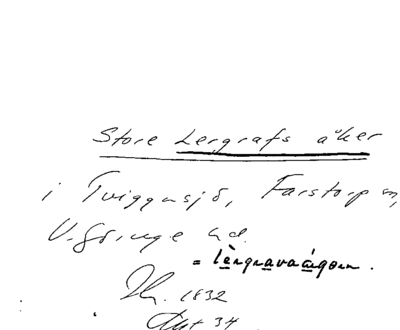 Store Lergrafs åker
i Tviggasjö, Farstorp sn,
V. Göinge hd.
= lèrgravaágorn.
1832
Akt 34